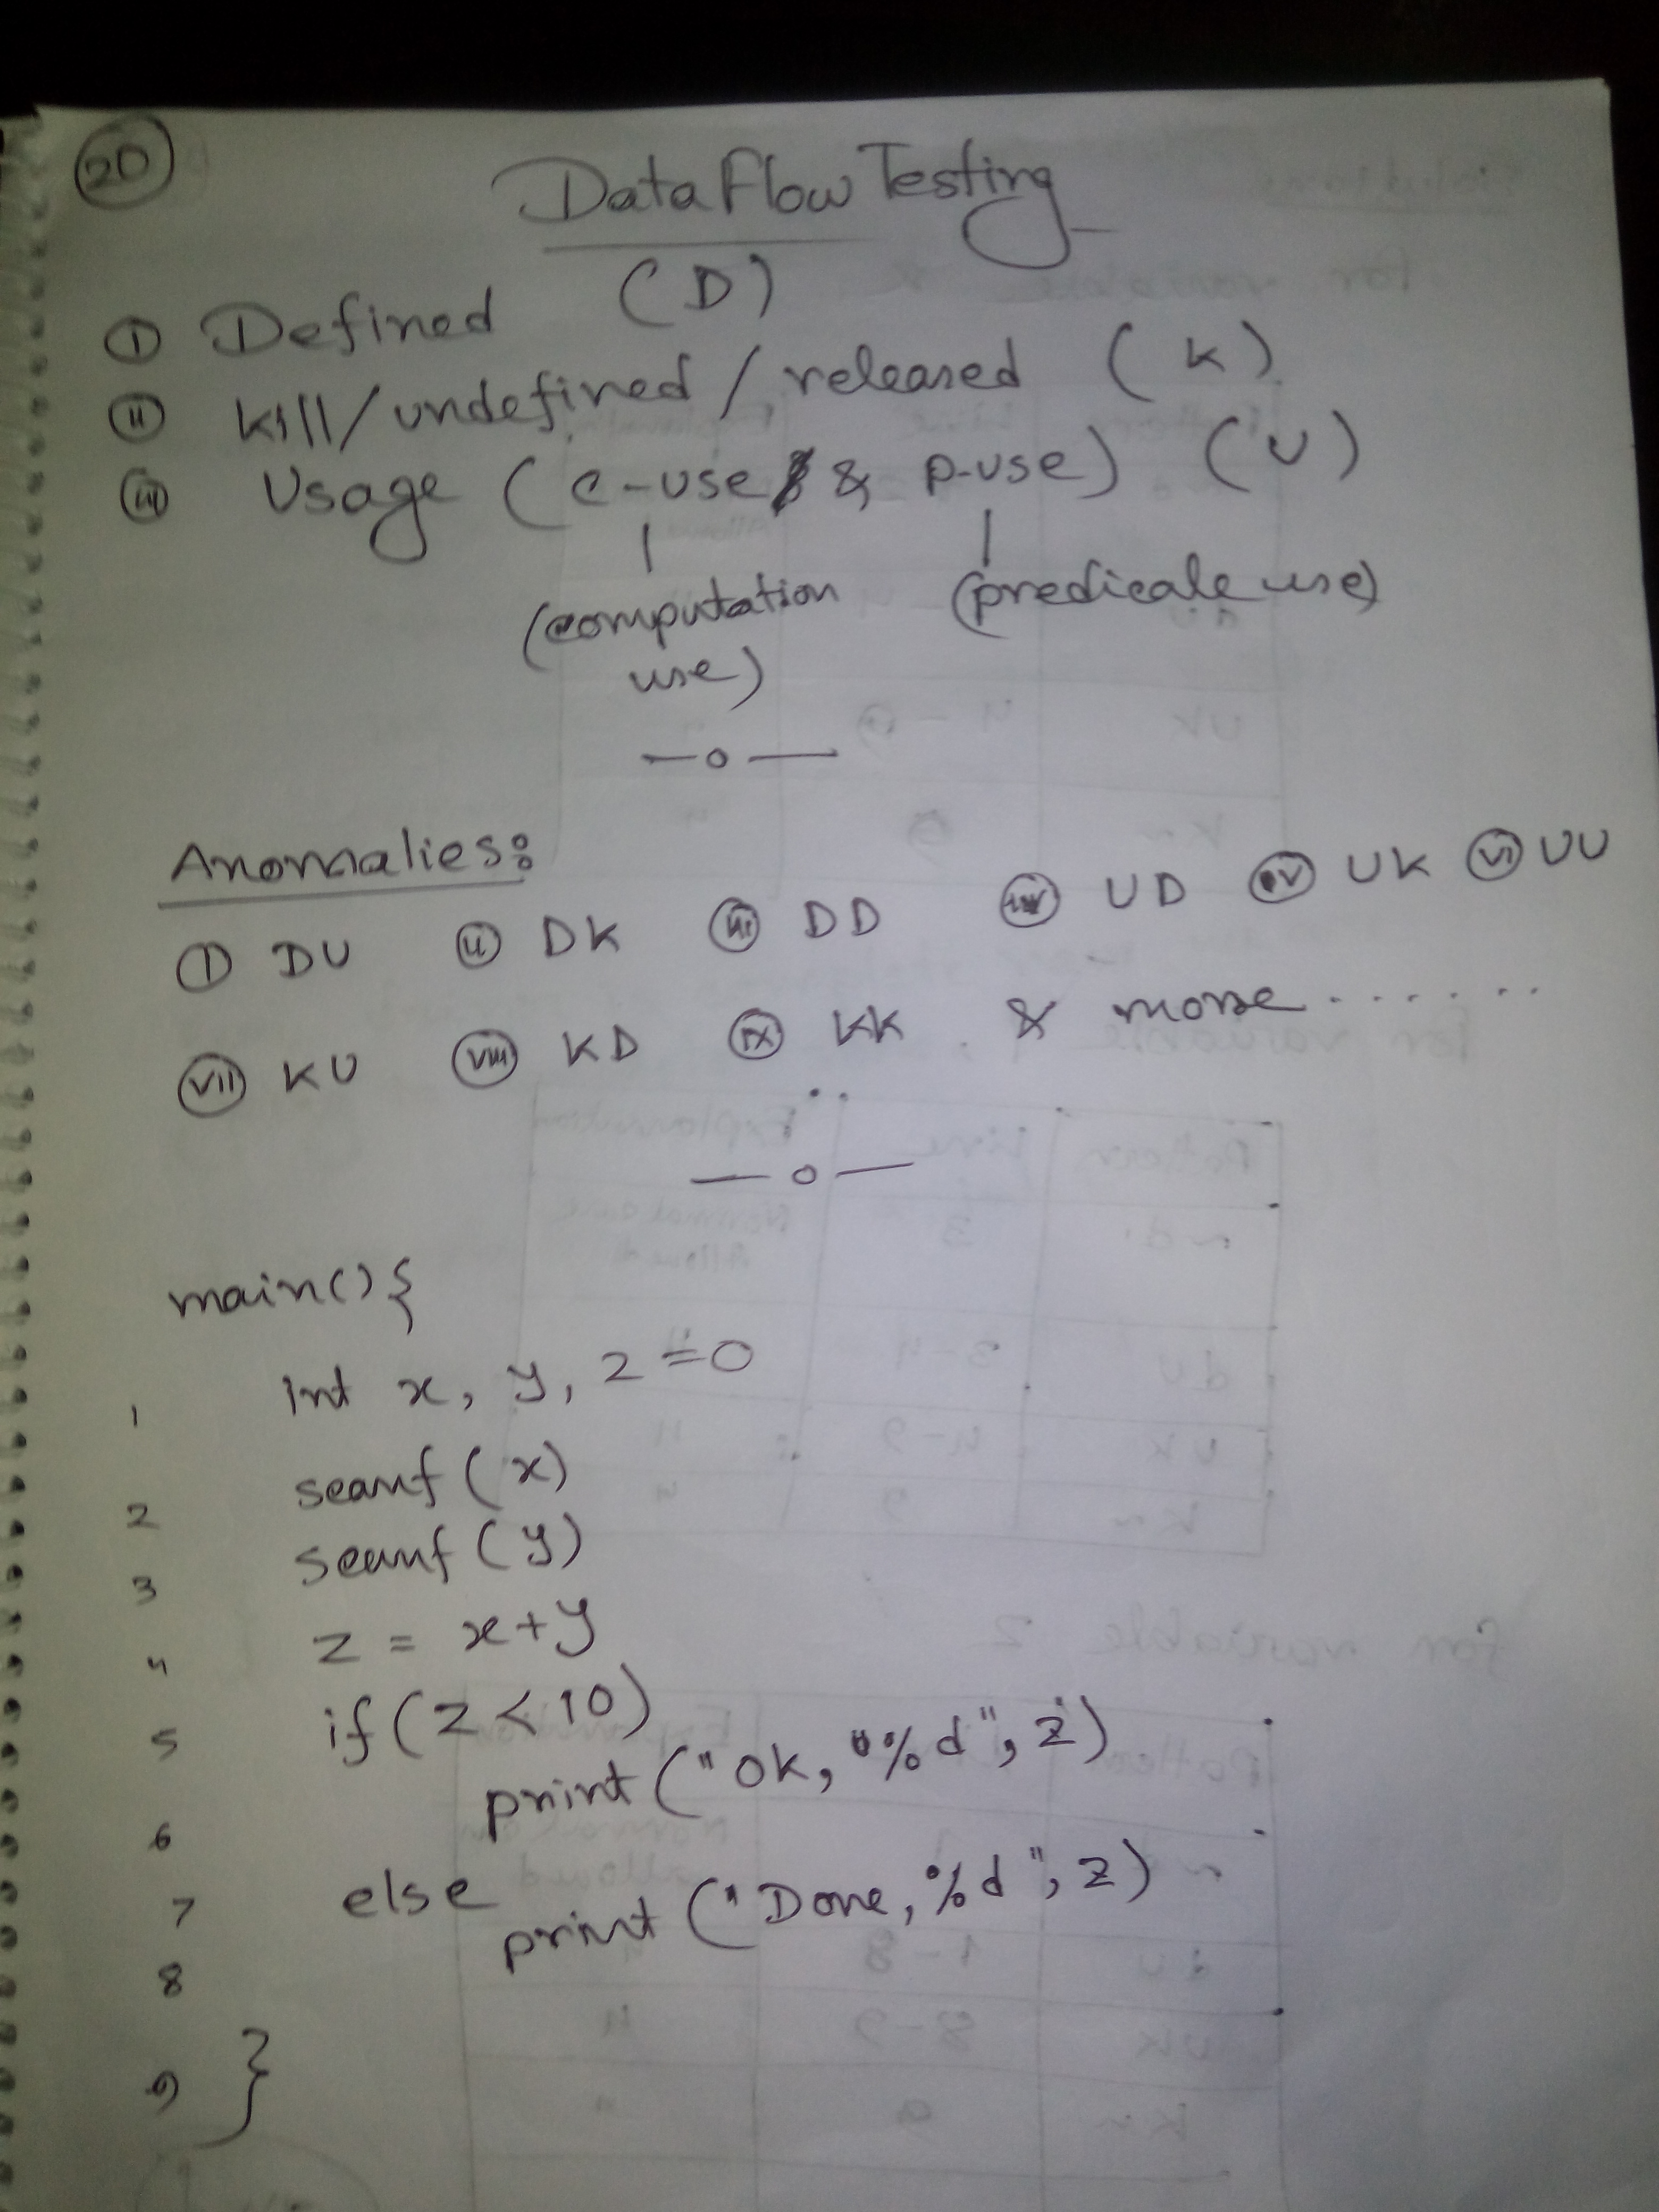 20
Data Flow Testing
(i) Defined (D)
(ii) Kill/undefined/released (K)
(iii) Usage (c-use & p-use) (U)
(computation use) (predicate use)
Anomalies:
(i) DU (ii) DK (iii) DD (iv) UD (v) UK (vi) UU
(vii) KU (viii) KD (ix) KK & more.......
main(){
1 int x, y, z=0
2 scanf(x)
3 scanf(y)
4 z = x+y
5 if(z<10)
6 print("Ok, "%d", z)
7 else
8 print("Done, %d", z)
9 }